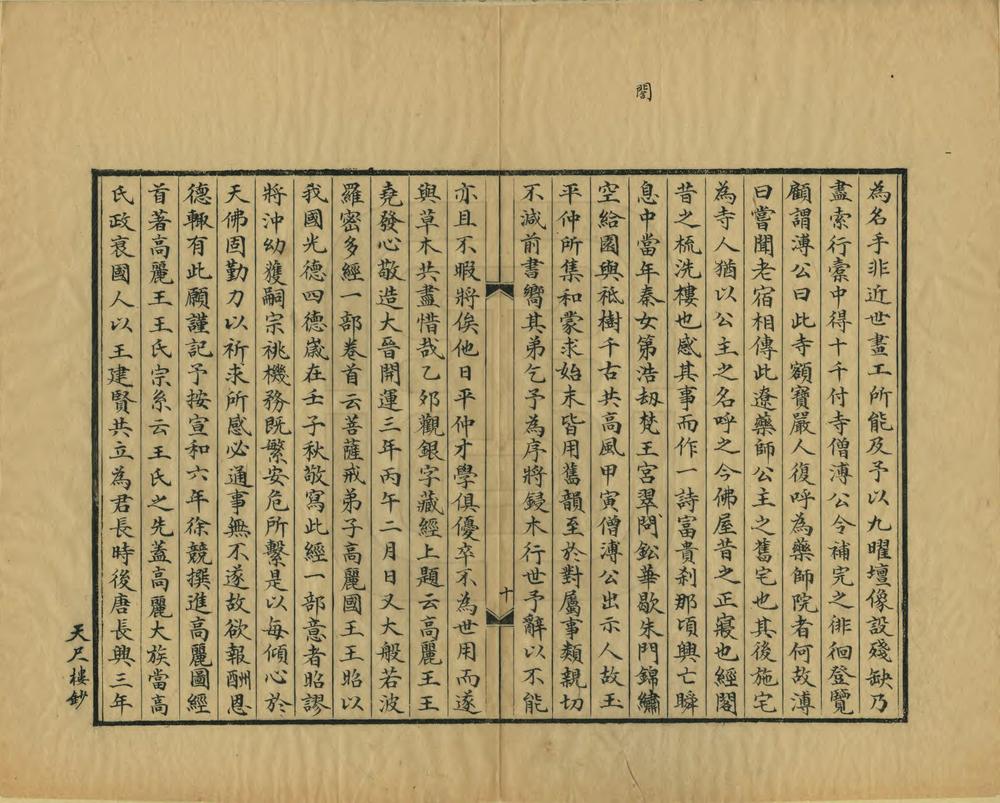 閣
為名手非近世畫工所能及予以九曜壇像設殘缺乃
盡索行橐中得十千付寺僧溥公今補完之徘徊登覽
顧謂溥公曰此寺額寶嚴人復呼為藥師院者何故溥
曰嘗聞老宿相傳此遼藥師公主之舊宅也其後施宅
為寺人猶以公主之名呼之今佛屋昔之正寢也經閣
昔之梳洗樓也感其事而作一詩富貴剎那頃興亡瞬
息中當年秦女第浩劫梵王宮翠閉鉛華歇朱門錦繡
空給園與祗樹千古共高風甲寅僧溥公出示人故玉
平仲所集和蒙求始末皆用舊韻至於對屬事類親切
不減前書嚮其弟乞予為序將鋟木行世予辭以不能
亦且不暇將俟他日平仲才學俱優卒不為世用而遂
與草木共盡惜哉乙夘觀銀字藏經上題云高麗王王
堯發心敬造大晉開運三年丙午二月日又大般若波
羅密多經一部卷首云菩薩戒弟子高麗國王王昭以
我國光德四德嵗在壬子秋敬寫此經一部意者昭謬
將沖幼獲嗣宗祧機務既繁安危所繫是以每傾心於
天佛固勤力以祈求所感必通事無不遂故欲報酬恩
德輙有此願謹記予按宣和六年徐競撰進高麗圖經
首著高麗王王氏宗系云王氏之先蓋高麗大族當高
氏政衰國人以王建賢共立為君長時後唐長興三年
十
天尺樓鈔